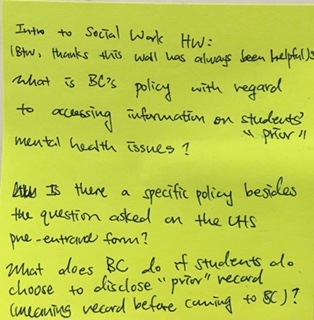 Intro to Social Work HW:
(Btw, thanks this wall has always been helpful):
What is BC's policy with regard
to accessing information on students'
"prior"
mental health issues?
Is there a specific policy besides
the question asked on the UHS
pre-entrance form?
What does BC do if students do
choose to disclose "prior" record
(meaning record before coming to BC)?